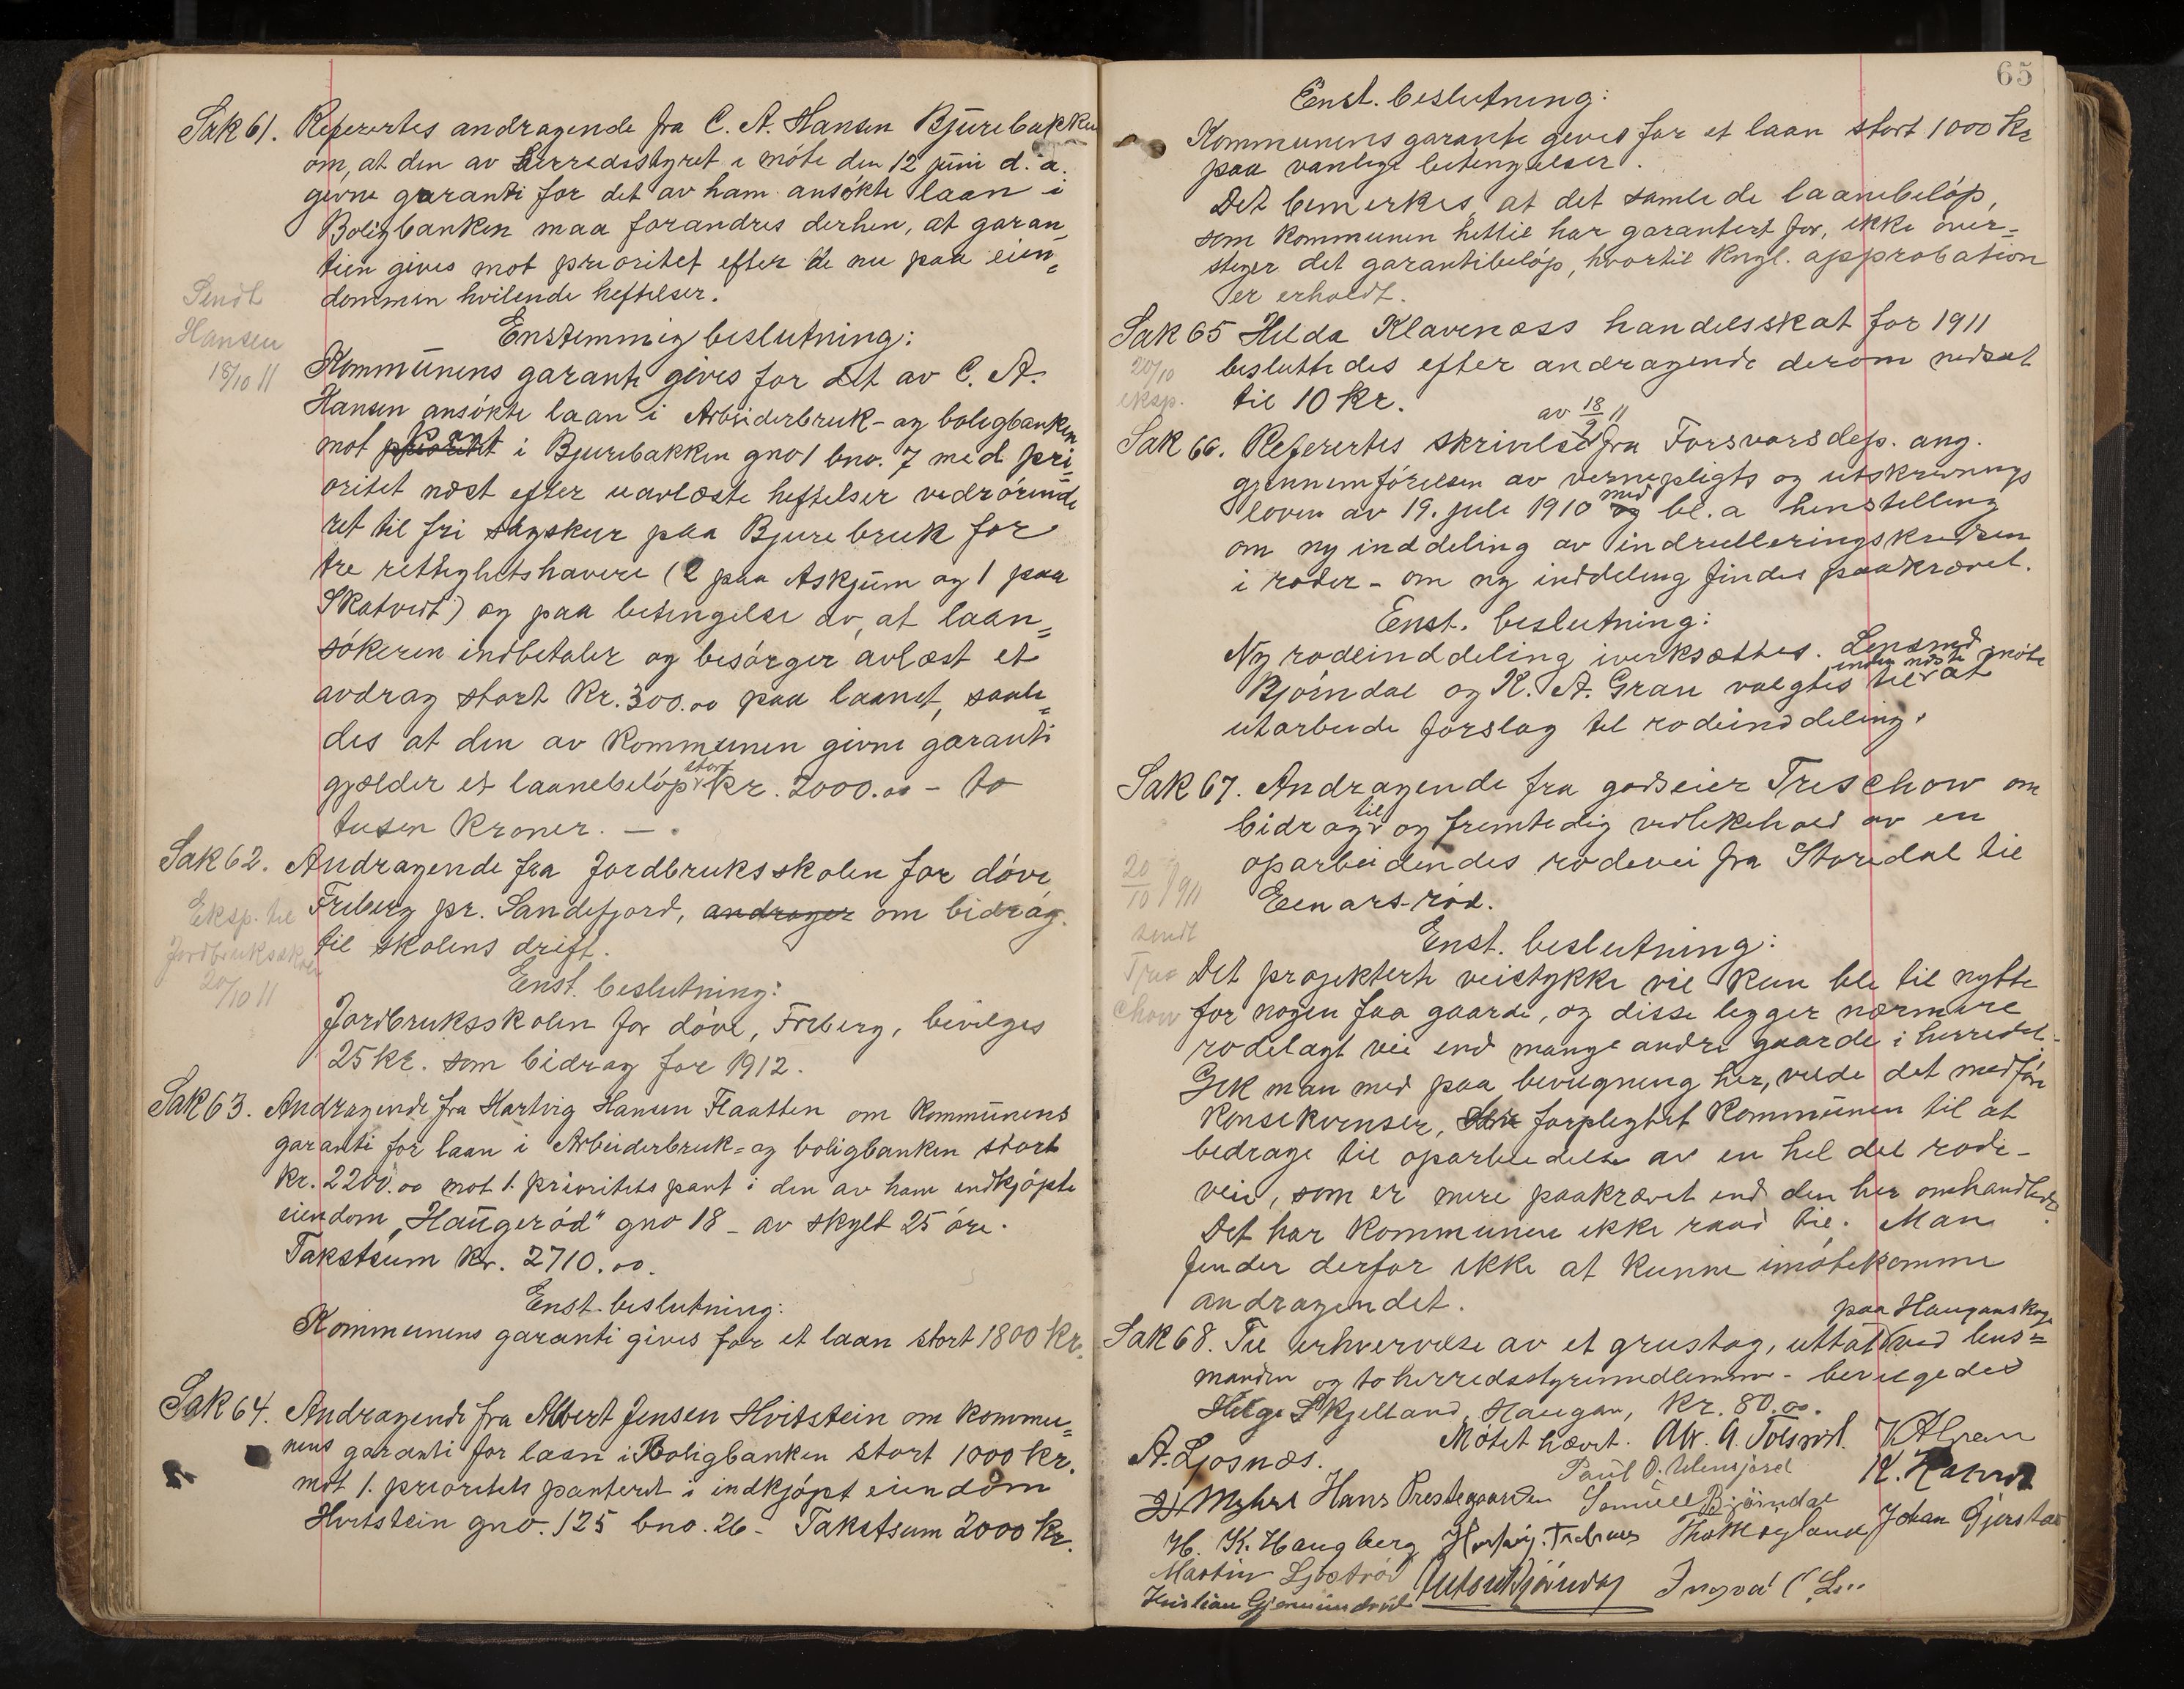 Sak 61. Referertes andragende fra C. A. Hansen Bjurebakken
om, at den av herredsstyret i möte den 12 juni d. a.
givne garanti for det av ham ansökte laan i
Boligbanken maa forandres derhen, at garan=
tien gives mot prioritet efter de nu paa eien=
dommen hvilende heftelser.
Sendt
Hansen
18/10 11
Enstemmig beslutning:
Kommunens garanti gives for det av C. A.
Hansen ansökte laan i Arbeiderbruk- og boligbanken
mot pant i Bjurebakken gno 1 bno. 7 med pri=
oritet næst efter uavlöste heftelser vedrörende
ret til fri sagskur paa Bjurebruk for
tre rettighetshavere (2 paa Askjum og 1 paa
Skatvedt) og paa betingelse av, at laan=
sökeren indbetaler og besörger avlæst et
avdrag stort kr. 300.00 paa laanet, saale=
des at den av kommunen givne garanti
gjælder et laanebelöp stort kr. 2000.00 - to
tusen kroner. —.
Sak 62. Andragende fra Jordbruksskolen for döve,
Friberg pr. Sandefjord, andrager om bidrag
til skolens drift.
Eksp. til
Jordbruksskolen
20/10 11
Enst. beslutning:
Jordbruksskolen for döve, Friberg, bevilges
25 kr. som bidrag for 1912.
Sak 63. Andragende fra Hartvig Hansen Flaatten om kommunens
garanti for laan i Arbeiderbruk= og boligbanken stort
kr. 2200.00 mot 1. prioritets pant i den av ham indkjöpte
eiendom „Haugeröd" gno 18 - av skyld 25 öre.
Takstsum kr. 2710.00.
Enst. beslutning:
Kommunens garanti gives for et laan stort 1800 kr.
Sak 64. Andragende fra Albert Jensen Hvitstein om kommu=
nens garanti for laan i Boligbanken stort 1000 kr.
mot 1. prioritets panteret i indkjöpt eiendom
Hvitstein gno. 125 bno. 26 - Takstsum 2000 kr.
65
Enst. beslutning:
Kommunens garanti gives for et laan stort 1000 kr
paa vanlige betingelser.
Det bemerkes, at det samlede laanebelöp,
som kommunen hittil har garantert for, ikke over=
stiger det garantibelöp, hvortil kngl. approbation
er erholdt.
Sak 65 Hilda Klavenæss handelsskat for 1911
besluttedes efter andragende derom nedsat
til 10 kr.
20/10
eksp.
Sak 66. Referertes skrivelse av 18/9 11 fra Forsvarsdep. ang.
gjennemförelsen av vernepligts og utskrivnings
loven av 19. juli 1910 med bl. a henstilling
om ny inddeling av indrulleringskredsen
i roder - om ny inddeling findes paakrævet.
Enst. beslutning:
Ny rodeinddeling iverksættes. Lensmd
Björndal og K. A. Gran valgtes til inden næste möte at
utarbeide forslag til rodeinddeling.
Sak 67. Andragende fra godseier Treschow om
bidrag til og fremtidig vedlikehold av en
oparbeidendes rodevei fra Storedal til
Eenarsröd.
20/10 1911
sendt
Tres
chow
Enst. beslutning:
Det projekterte veistykke vil kun bli til nytte
for nogen faa gaarde, og disse ligger nærmere
rodelagt vei end mange andre gaarde i herredet.
Gik man med paa bevilgning her, vilde det medföre
konsekvenser, forpligtet kommunen til at
bidrage til oparbeidelse av en hel del rode-
veie, som er mere paakrævet end den her omhandlede.
Det har kommunen ikke raad til. Man
finder derfor ikke at kunne imötekomme
andragendet.
Sak 68. Til erhvervelse av et grustag, uttat paa Hauganskog ved lens=
manden og to herredsstyremedlemmer - bevilgedes
Helge Skjelland, Haugan, kr. 80.00.
Mötet hævet. Alv. A. Tolsrød. K A Gran
A. Ljosnæs.
Hans Prestegaarden Samuell Björndal Johan Gjerstad
H. K. Haugberg
Martin
Kristian Gjermundröd